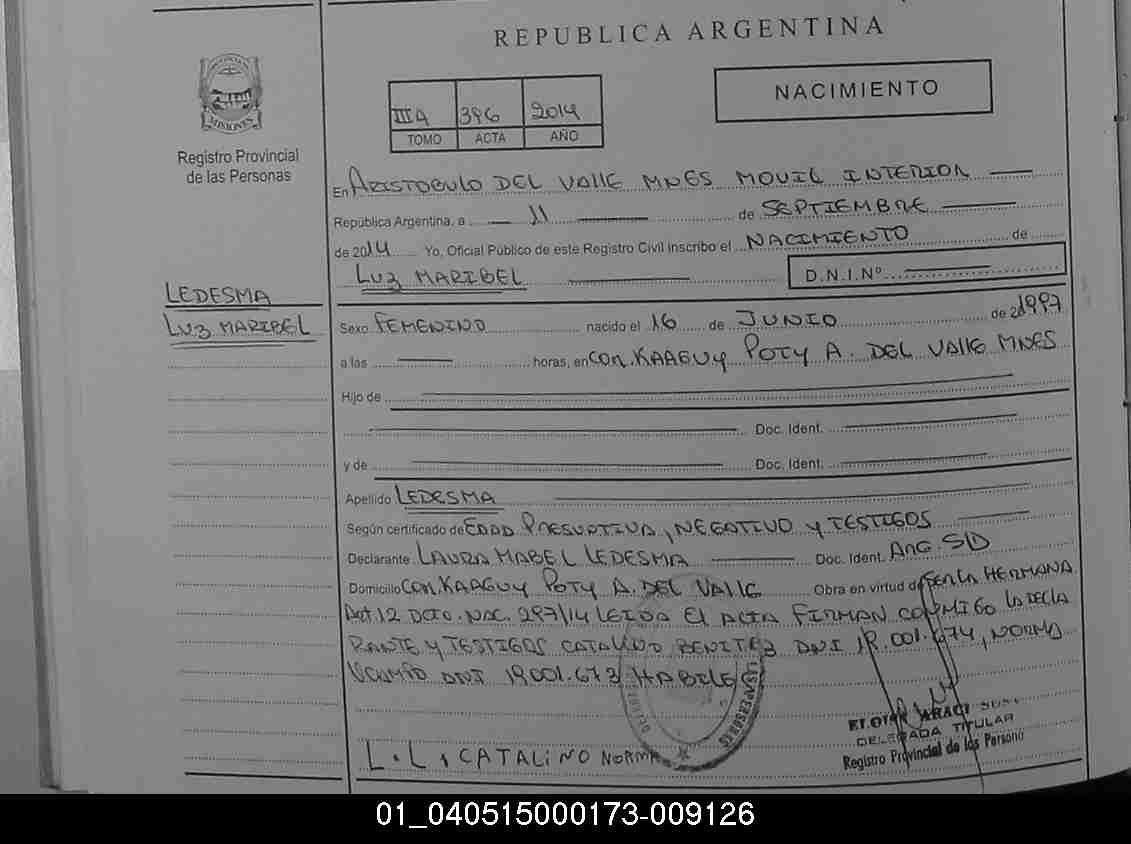 REPUBLICA ARGENTINA
PROVINCIA DE
MISIONES
Registro Provincial
de las Personas
IIIA 396 2014
TOMO ACTA AÑO
NACIMIENTO
En ARISTOBULO DEL VALLE MNES MOVIL INTERIOR
República Argentina, a 11 de SEPTIEMBRE
de 2014 Yo, Oficial Público de este Registro Civil inscribo el NACIMIENTO de
LUZ MARIBEL D.N.I.Nº
LEDESMA
LUZ MARIBEL
Sexo FEMENINO nacido el 16 de JUNIO de 1997
a las horas, en COM. KAAGUY POTY A. DEL VALLE MNES
Hijo de
Doc. Ident.
y de Doc. Ident.
Apellido LEDESMA
Según certificado de EDAD PRESUNTIVA, NEGATIVO Y TESTIGOS
Declarante LAURA MABEL LEDESMA Doc. Ident. ARG. SD
Domicilio COM. KAAGUY POTY A. DEL VALLE Obra en virtud de SER LA HERMANA
Art. 12 DCTO. NAC. 297/14 LEIDA EL ACTA FIRMAN CONMIGO LA DECLA
RANTE Y TESTIGOS CATALINO BENITEZ DNI 19.001.674, NORMA
DNI 19.001.673 HABILES
L. L. CATALINO NORMA
DELEGADA TITULAR
Registro Provincial de las Personas
01_040515000173-009126